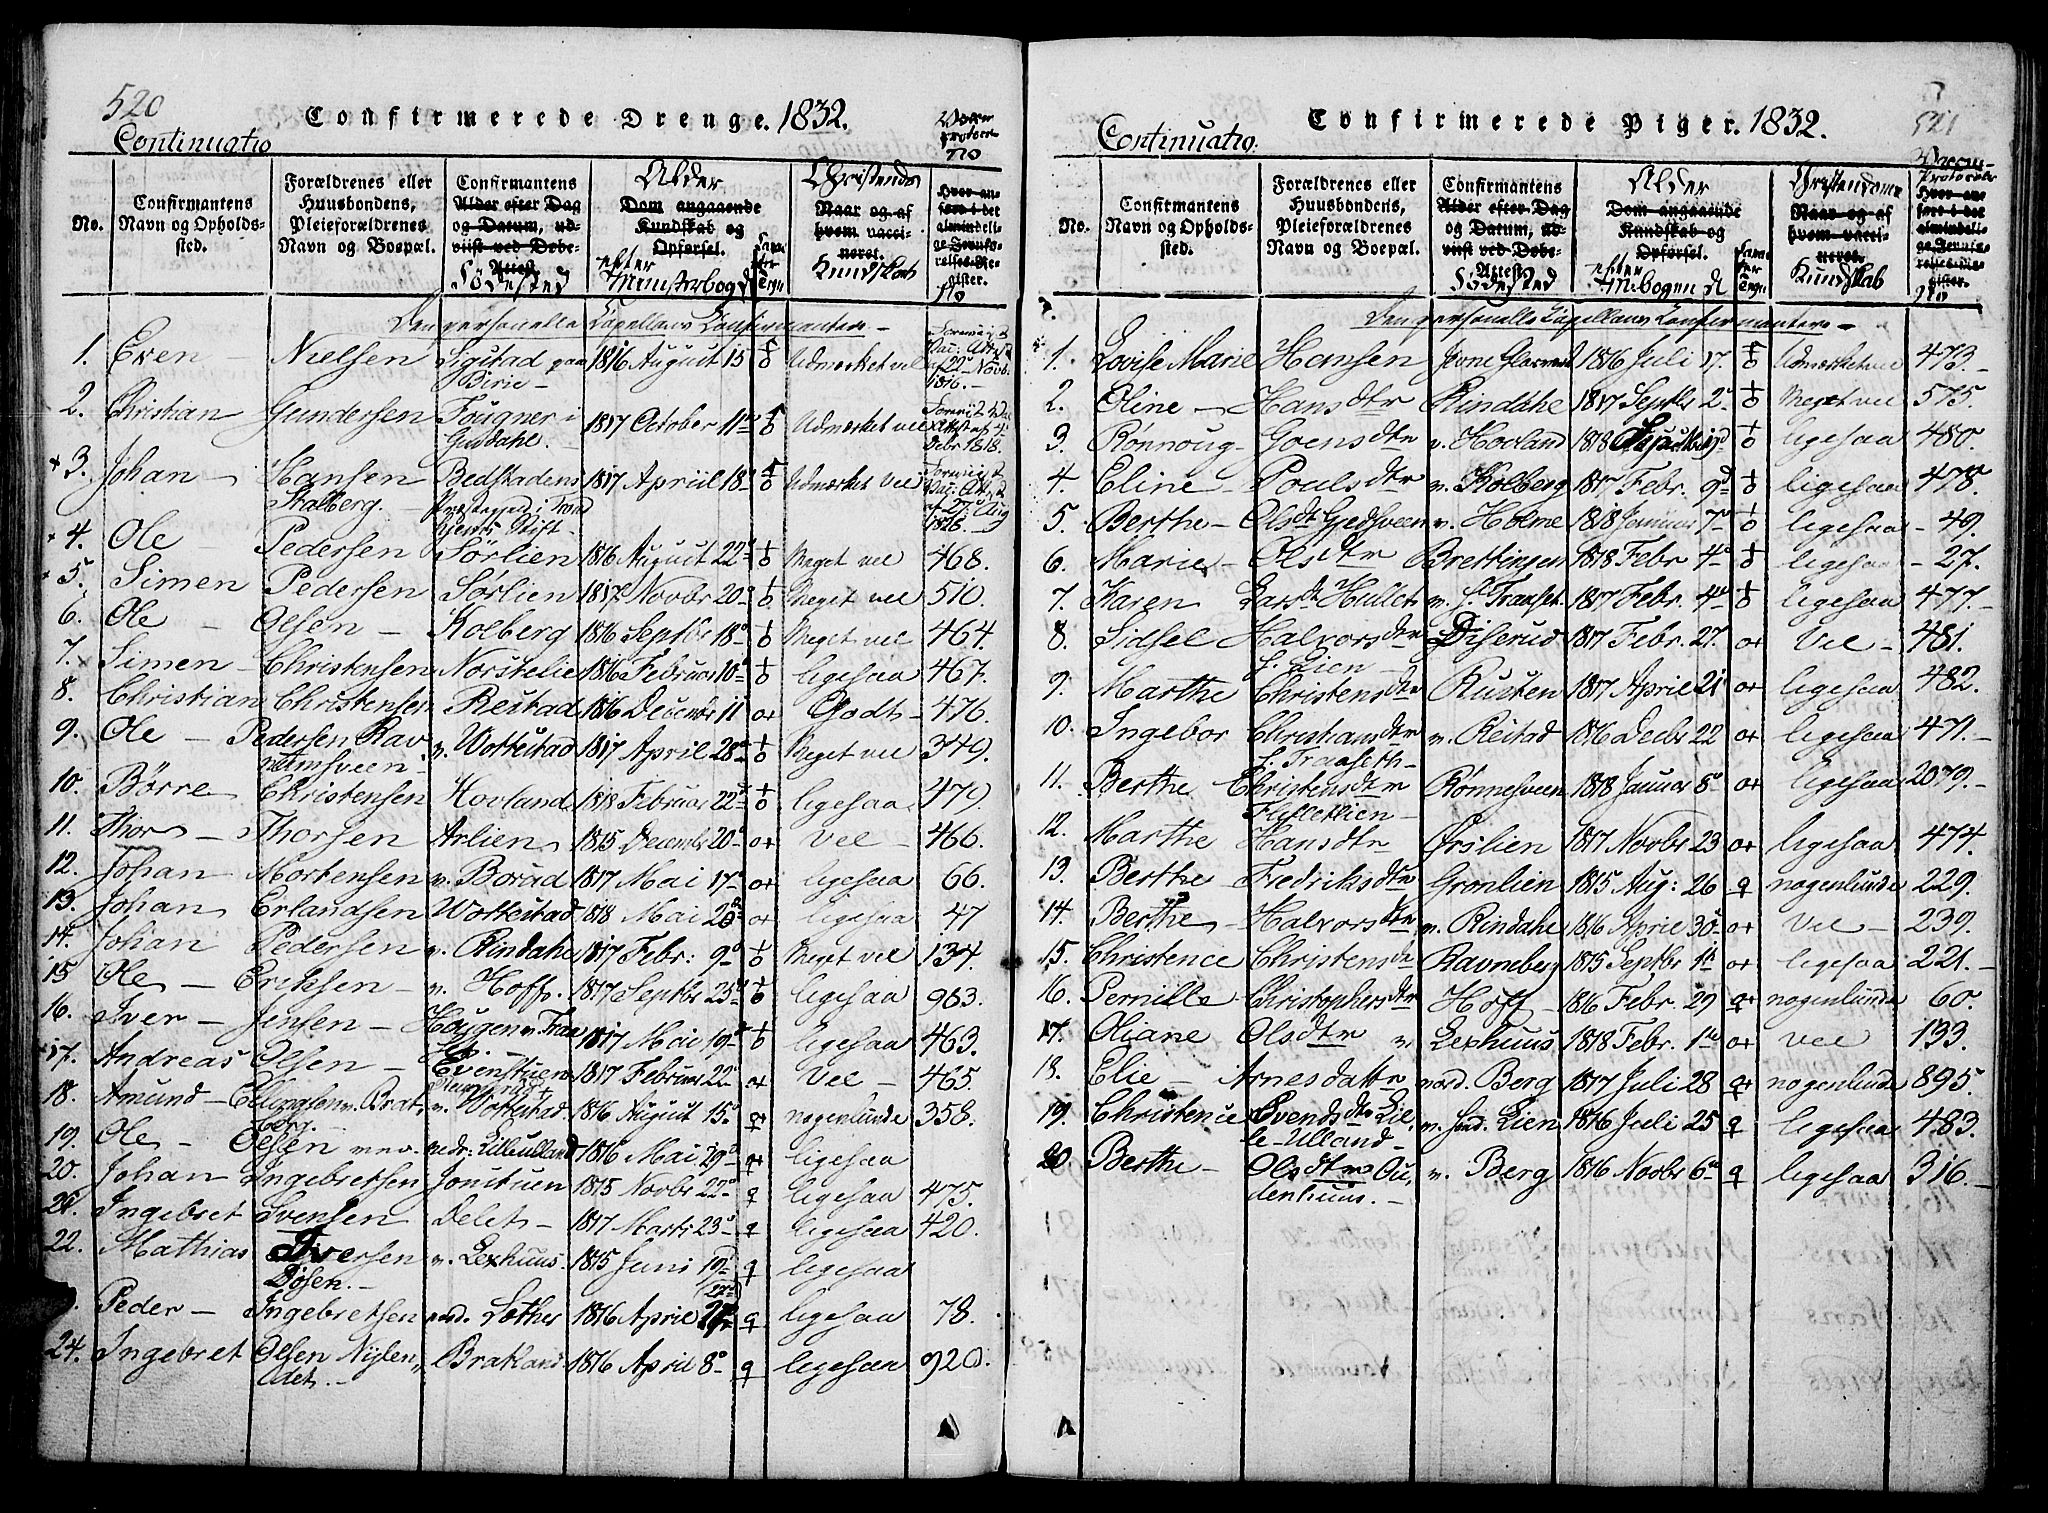 520
Confirmerede Drenge. 1832.
Continuatio
No.
Confirmantens Navn og Opholdssted.
Forældrenes eller Huusbondens, Pleieforældrenes Navn og Boepæl.
Confirmantens Alder efter Dag og Datum, udviist ved Døbe-Attest. Födested
Alder Dom angaaende Kundskab og Opførsel. efter Ministerbog
Christendoms Naar og af hvem vaccineret. Kundskab
Hvor anført i det almindelige Jevnførelses-Register. No
Den personelle Capellans Confirmantere
1. Even Nielsen Sigstad paa Birie 1816 August 15 Udmærket vel 22 Novb. 1816.
2. Christian Gundersen Fougner i Gusdahl. 1817 October 11 Udmærket vel Debr 1818.
3. Johan Hansen Stalberg. Bedstadens Præstegield i Trond hiems Stift 1817 Apriil 18 Udmærket vel
4. Ole Pedersen Sörlien 1816 August 22 Meget vel 468.
5. Simen Pedersen Sørlien 1817 Novbr 20 Meget vel 510.
6. Ole Olsen Kolberg 1816 Septbr 18 Meget vel 464.
7. Simen Christensen Norstelie 1816 Februar 10 ligesaa 467.
8. Christian Christensen Reistad 1816 December 11 Godt 476.
9. Ole Pedersen Rav v. Wottestad 1817 April 28 Meget vel 349.
10. Börre Christensen Hovland 1818 Februar 22 ligesaa 479.
11. Thor Thorsen Arlien 1815 December 20 Vel 466.
12. Johan Mortensen v. Borud 1817 Mai 17 ligesaa 66.
13. Johan Erlandsen Wottestad 1818 Mai 20 ligesaa 47
14. Johan Pedersen v. Rindahl 1817 Febr: 9 Meget vel 134.
15 Ole Eriksen v. Hoff. 1817 Septbr 25 ligesaa 963.
16. Iver Jensen Haugen v. 1817 Mai 19 ligesaa 463.
17. Andreas Olsen Evenstuen 1817 Februar 22 Vel 465.
18. Amund Ellingsen v. Brat berg. v. Wottestad. 1816 August 15 nogenlunde 358.
19. Ole Olsen nedr: Lilleulland 1816 Mai 29 ligesaa
20. Johan Ingebretsen Jonstuen 1815 Novbr 22 ligesaa 475.
21. Ingebret Svensen Delet 1817 Marts 23 ligesaa 420.
22. Mathias Iversen Dösen. v. Lexhuus 1815 Juni 19 ligesaa
Peder Ingebretsen nord. Sother 1816 April ligesaa 78.
24. Ingebret Olsen Nylen det. Brakland 1816 April 8 ligesaa 920.
521
Confirmerede Piger. 1832.
Continuatio.
No.
Confirmantens Navn og Opholdssted.
Forældrenes eller Huusbondens, Pleieforældrenes Navn og Boepæl.
Confirmantens Alder efter Dag og Datum, udviist ved Døbe-Attest. Födested
Alder Dom angaaende Kundskab og Opførsel. efter Mbogen
Christendoms Naar og af hvem vaccineret. Kundskab
Hvor anført i det almindelige Jevnførelses-Register. No
Den personelle Capellans Confirmantere
1. Lovise Marie Hansen 1816 Juli 17. Udmærket vel 473.
2. Oline Hansdtr Rindahl 1817 Septbr 2 Meget vel 575.
3. Rönnoug Goensdtr v. Hovland 1818 ligesaa 480.
4. Eline Poulsdtr v. Kolberg 1817 Febr. 9 ligesaa 478.
5. Berthe Olsdtr Gjedsveen v. Holme 1818 Januar 7 ligesaa 49.
6. Marie Olsdtr Brettingen 1818 Febr 4 ligesaa 27.
7. Karen Larsdtr v. S. Franset. 1817 Febr. 4 ligesaa 477.
8. Sidsel Halvorsdtr S. Lien Diserud 1817 Febr. 27. Vel 481.
9. Marthe Christensdtr Rusten 1817 April 21 ligesaa 482.
10. Ingebor Christiansdtr S. Franseth v. Reistad 1816 Decbr 22 ligesaa 471.
11. Berthe Christensdtr Flittetlien Rönnesveen 1818 Januar 8 ligesaa 2079.
12. Marthe Hansdtr Örslien 1817 Novbr 23 ligesaa 474.
13. Berthe Fredriksdtr Gronlien 1815 Aug: 26 nogenlunde 229.
14. Berthe Halvorsdtr v. Rindahl 1816 April 30 Vel 239.
15. Christence Christensdtr Ravneberg 1815 Septbr 1 ligesaa 221.
16. Pernille Christophersdtr Hoff 1816 Febr. 29 nogenlunde 60.
17. Oliane Olsdtr v. Lexhuus 1818 Febr. 1 vel 133.
18. Elie Arnesdattr nord. Berg 1817 Juli 28 nogenlunde 895.
19. Christence Svendsdtr Lil le-Ulland v. Lien 1816 Juli 25 ligesaa 483.
20 Berthe Olsdtr Ou denhuus. v. Berg 1816 Novbr 6 ligesaa 316.